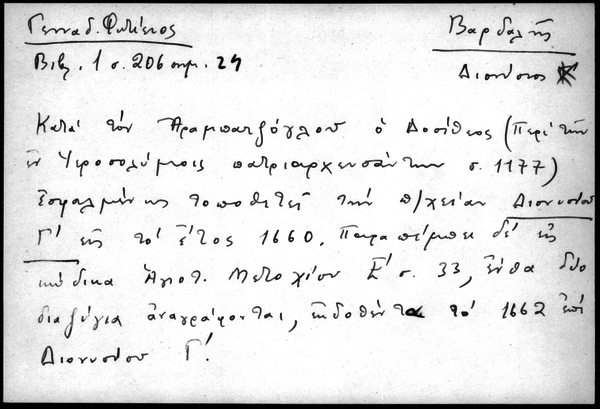 Γενναδ. Φωτίειος
Βαρδαλῆς
Βιβλ. 1 σ. 206 σημ. 24
Διονύσιος
Κατά τόν Ἀραμπατζόγλου ὁ Δοσίθεος (Περί τῶν
ἐν Ἱεροσολύμοις πατριαρχευσάντων σ. 1177)
ἐσφαλμένως τοποθετεῖ τήν π/χείαν Διονυσίου
Γ΄ εἰς τό ἔτος 1660. Παραπέμπει δέ εἰς
κώδικα Ἁγιοτ. Μετοχίου Ε΄ σ. 33, ἔνθα δύο
διαζύγια ἀναγράφονται, ἐκδοθέντα τό 1662 ἐπί
Διονυσίου Γ΄.